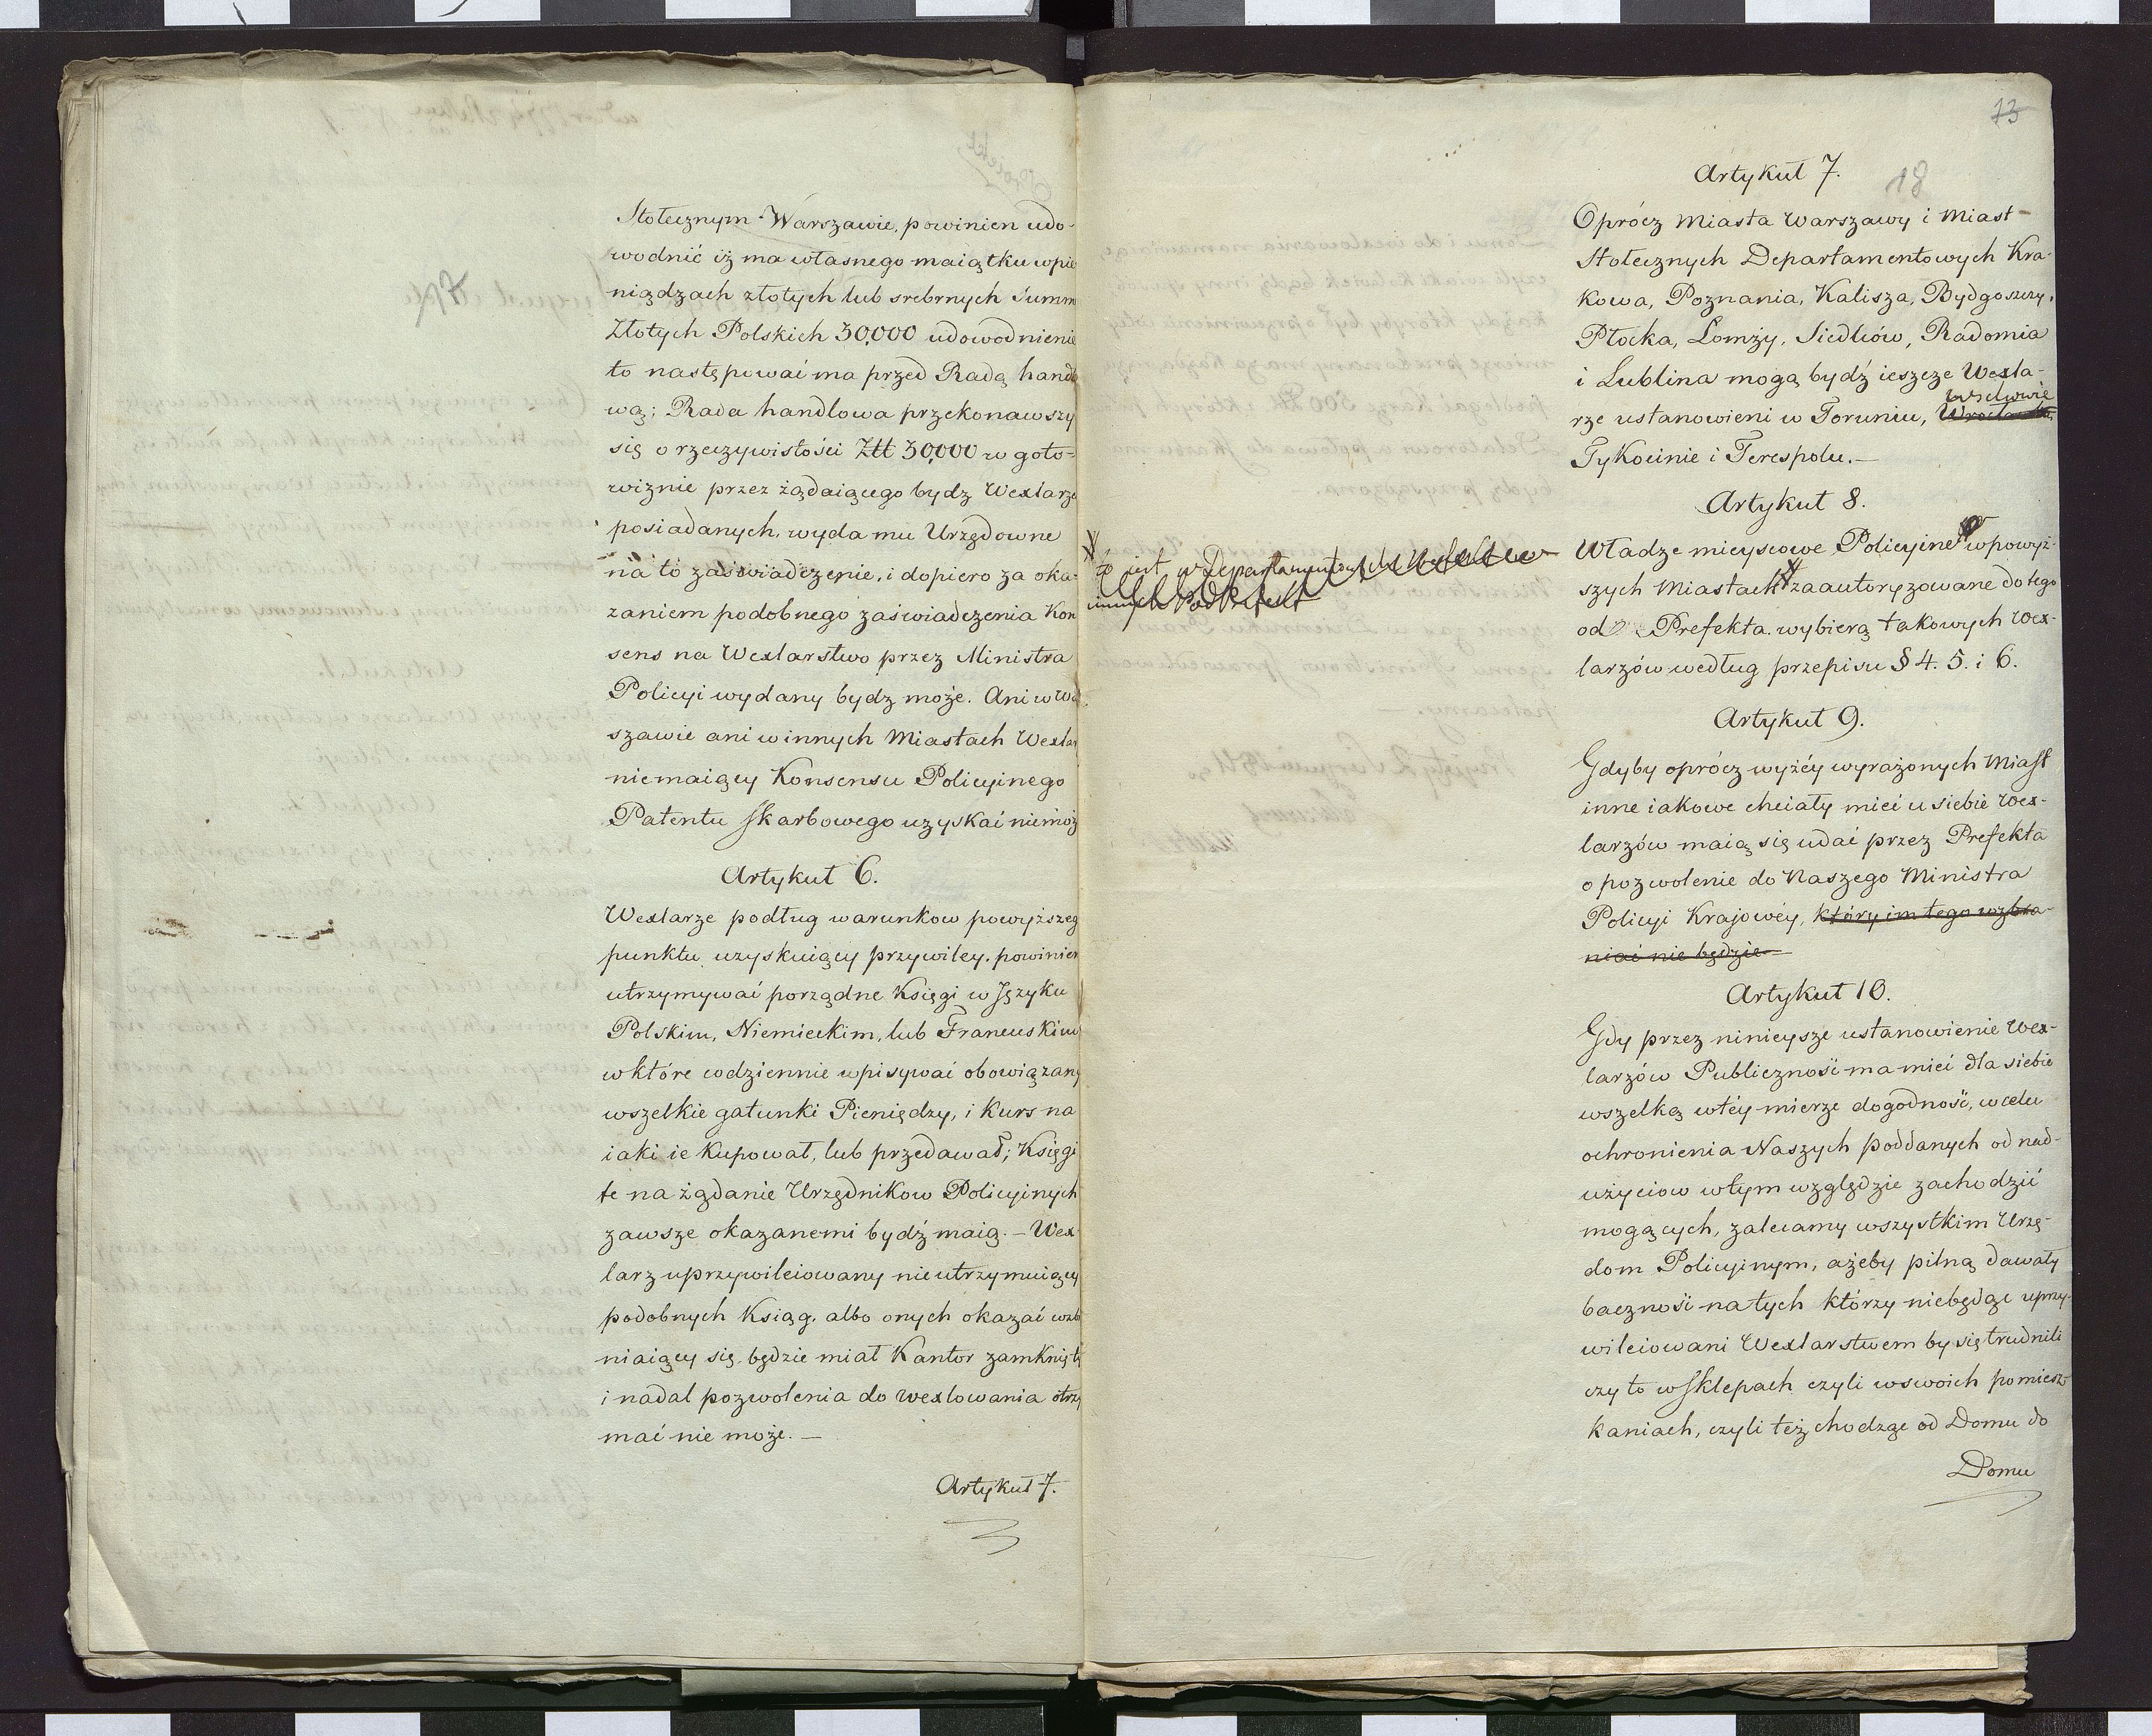 Stołecznym Warszawie, powinien udo-
wodnić iż ma własnego maiątku w pie
niądzach złotych lub srebrnych Summ
Złotych Polskich 30,000 udowodnienie
to następować ma przed Radą handlo
wą; Rada handlowa przekonawszy
się o rzeczywistości Złł 30,000 w goto-
wiznie przez żądaiącego bydz Wexlarze
posiadanych, wyda mu Urzędowne
na to zaświadczenie, i dopiero za oka-
zaniem podobnego zaświadczenia Kon
sens na Wexlarstwo przez Ministra
Policyi wydany bydz może. Ani w Wa
szawie ani w innych Miastach Wexlar
niemaiący Konsensu Policyinego
Patentu Skarbowego uzyskać niemoż
Artykuł 6.
Wexlarze podług warunkow powyższeg
punktu uzyskuiący przywiley, powinien
utrzymywać porządne Księgi w Języku
Polskim, Niemieckim, lub Francuskim
w które codziennie wpisywać obowiązany
wszelkie gatunki Pieniędzy, i Kurs na
iaki ie Kupował, lub przedawał; Księgi
te na żądanie Urzędnikow Policyinych
zawsze okazanemi bydź maią. — Wex-
larz uprzywileiowany nieutrzymuiący
podobnych Ksiąg, albo onych okazać wzb
niaiący się, będzie miał Kantor zamknięty
i nadal pozwolenia do wexlowania otrzy
mać nie może. —
Artykuł 7.
73
18
Artykuł 7.
Oprócz Miasta Warszawy i Miast
Stołecznych Departamentowych Kra-
kowa, Poznania, Kalisza, Bydgoszczy,
Płocka, Lomży, Siedlców, Radomia
i Lublina mogą bydź ieszcze Wexla-
rze ustanowieni w Toruniu,
Tykocinie i Terespolu. —
Artykuł 8.
Władze mieyscowe Policyine w powyż-
szych Miastach zaautoryzowane do tego
od Prefekta wybierą takowych Wex-
larzów według przepisu § 4. 5. i 6.
to iest w Departamentowych
innych Podprefekt
Artykuł 9.
Gdyby oprócz wyżéy wyrażonych Miast
inne iakowe chciały mieć u siebie Wex-
larzów maią się udać przez Prefekta
o pozwolenie do Naszego Ministra
Policyi Krajowéy, który im tego wzbra-
niać nie będzie —
Artykuł 10.
Gdy przez ninieysze ustanowienie Wex-
larzów Publiczność ma mieć dla siebie
wszelką w téy mierze dogodność, w celu
ochronienia Naszych poddanych od nad-
użyciow w tym względzie zachodzić
mogących, zalecamy wszystkim Urzę-
dom Policyinym, ażeby pilną dawały
baczność na tych którzy niebędąc uprzy-
wileiowani Wexlarstwem by się trudnili
czy to w Sklepach czyli w swoich pomiesz-
kaniach, czyli też chodząc od Domu do
Domu